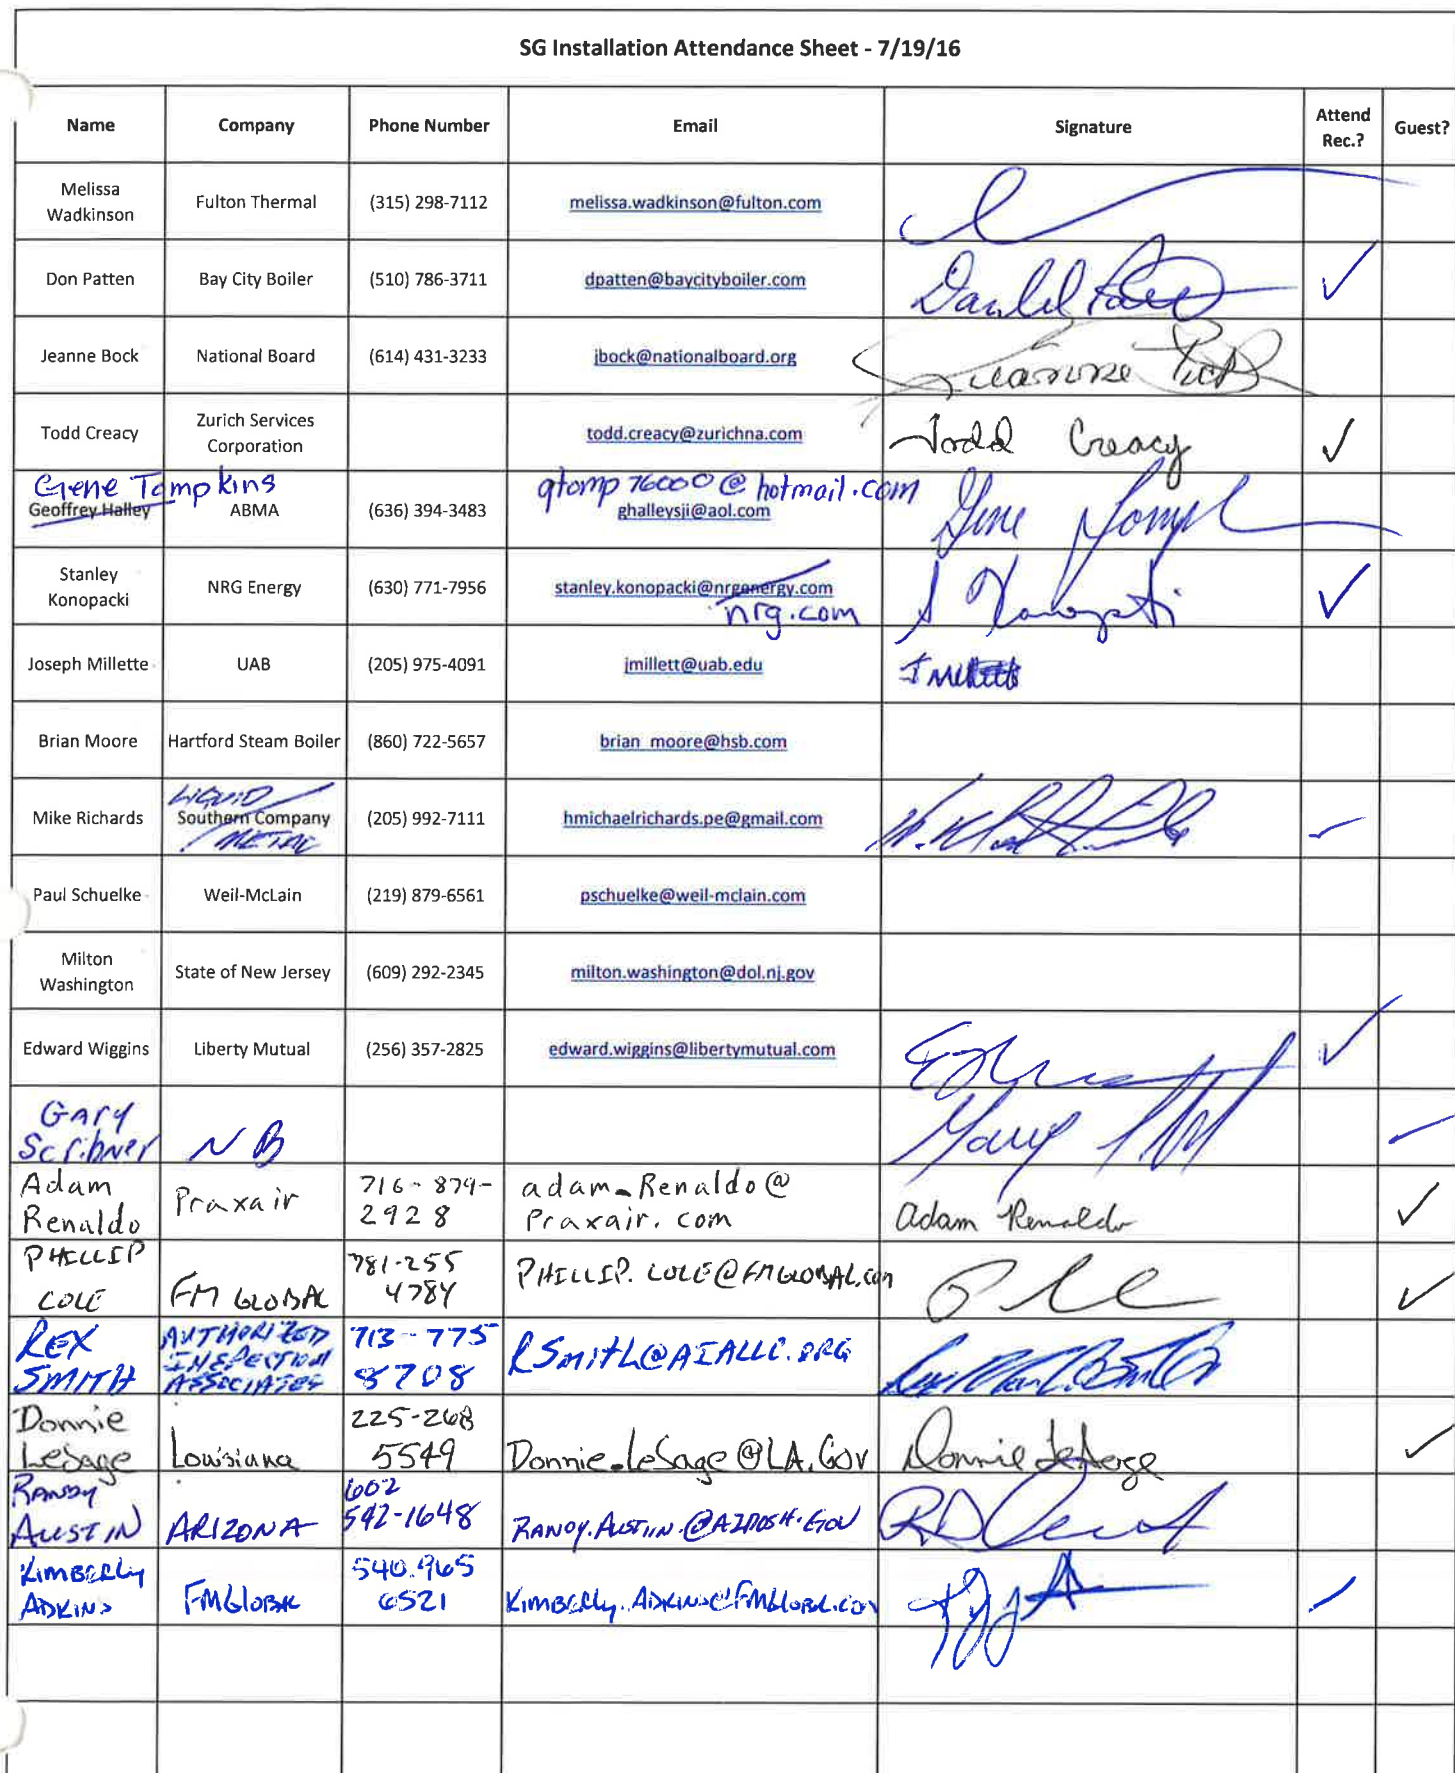 SG Installation Attendance Sheet - 7/19/16
Name Company Phone Number Email Signature Attend Rec.? Guest?
Melissa Wadkinson Fulton Thermal (315) 298-7112 melissa.wadkinson@fulton.com
Don Patten Bay City Boiler (510) 786-3711 dpatten@baycityboiler.com
Jeanne Bock National Board (614) 431-3233 jbock@nationalboard.org
Todd Creacy Zurich Services Corporation todd.creacy@zurichna.com Todd Creacy
Gene Tompkins gtomp76000@hotmail.com
Geoffrey Halley ABMA (636) 394-3483 ghalleysji@aol.com Gene
Stanley Konopacki NRG Energy (630) 771-7956 stanley.konopacki@nrgenergy.com
nrg.com
Joseph Millette UAB (205) 975-4091 jmillett@uab.edu
Brian Moore Hartford Steam Boiler (860) 722-5657 brian_moore@hsb.com
LIQUID
Mike Richards Southern Company (205) 992-7111 hmichaelrichards.pe@gmail.com
METAL
Paul Schuelke Weil-McLain (219) 879-6561 pschuelke@weil-mclain.com
Milton Washington State of New Jersey (609) 292-2345 milton.washington@dol.nj.gov
Edward Wiggins Liberty Mutual (256) 357-2825 edward.wiggins@libertymutual.com
Gary Scribner NB Gary
Adam Renaldo Praxair 716-879-2928 adam_Renaldo@Praxair.com Adam Renaldo
PHILLIP COLE FM GLOBAL 781-255 4784 PHILLIP.COLE@FMGLOBAL.com
REX SMITH AUTHORIZED INSPECTION ASSOCIATES 713-775 8708 RSmith@AIALLC.ORG
Donnie LeSage Louisiana 225-268 5549 Donnie.LeSage@LA.Gov Donnie LeSage
RANDY AUSTIN ARIZONA 602 542-1648 RANDY.AUSTIN.@AZDOSH.GOV
KIMBERLY ADKINS FMGLOBAL 540.965 6521 KIMBERLY.ADKINS@FMGLOBAL.COM